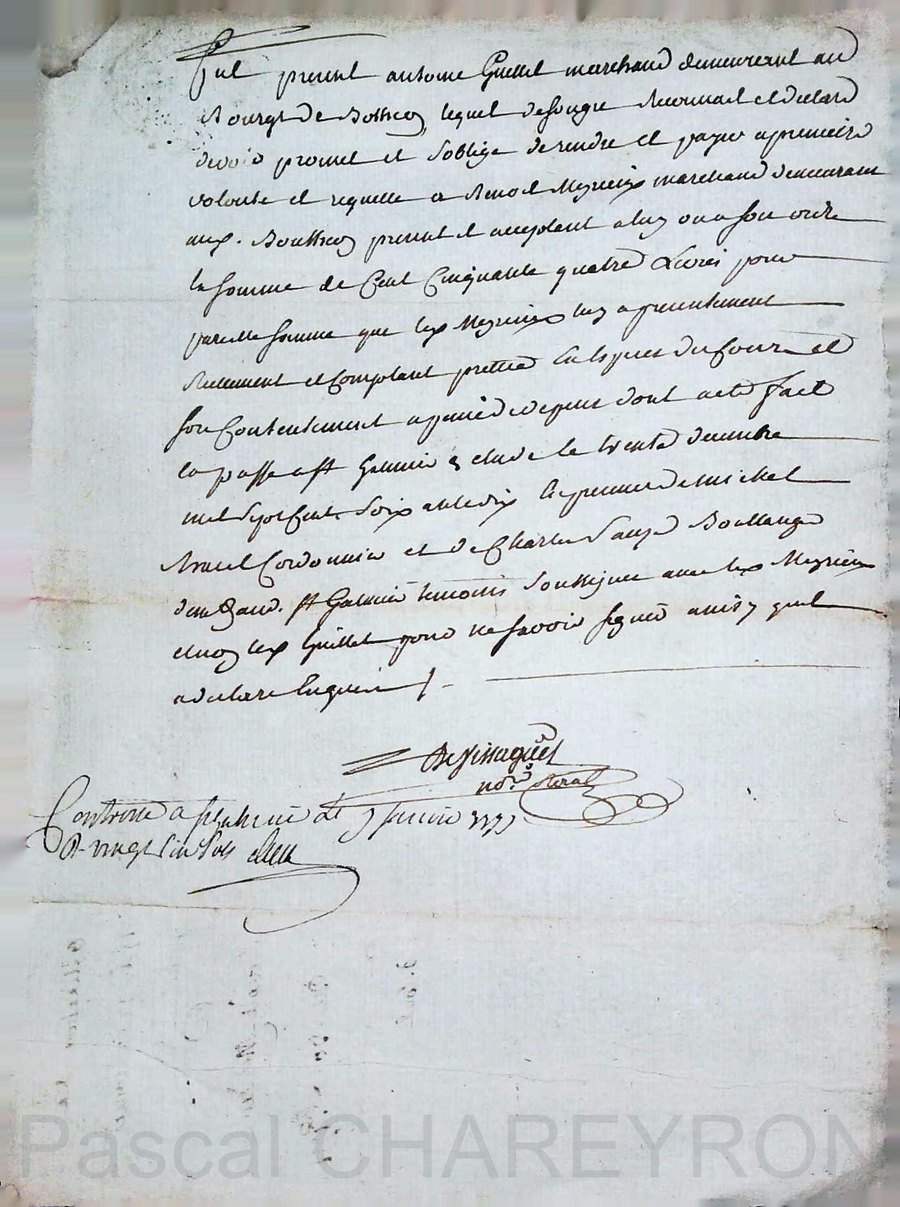 fut present antoine Guillet marchand demeurant au
Bourgt de Bothieu lequel de son gre Reconnait et declare
devoir promet et soblige de rendre et payer a premiere
volonte et requette a Benoit Meyrieux marchand demeurant
aux. Bothieu present et acceptant a luy ou a son ordre
la somme de Cent Cinquante quatre Livres pour
pareille somme que led Meyrieux luy a presentement
Reellement et Comptant pretté En Especes du Cours et
son Contentement a peine de depens dont acte fait
et passé a st Galmier Etude le trente decembre
mil Sept Cents Soixante dix En presence de michel
Cordonnier et de Charles Boullanger
demt aud. st Galmier temoins Soussignes avec led Meyrieux
et non led Guillet pour ne savoir signer ainsy quil
a declaré Enquis /.
nore Royal
Controllé a st Galmier le 7 janvier 1771
R. vingt six sols
Pascal CHAREYRON